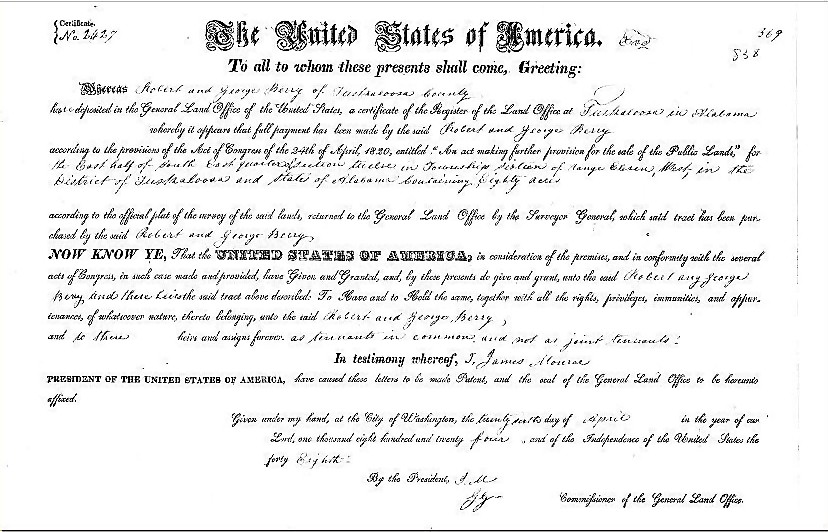 Certificate.
No. 2427
The United States of America.
369
838
To all to whom these presents shall come, Greeting:
Whereas Robert and George Berry of Tuskaloosa County
have deposited in the General Land Office of the United States, a certificate of the Register of the Land Office at Tuskaloosa in Alabama
whereby it appears that full payment has been made by the said Robert and George Berry
according to the provisions of the Act of Congress of the 24th of April, 1820, entitled "An act making further provision for the sale of the Public Lands," for
the East half of South East quarter of Section twelve in Township sixteen of range Eleven, West in the
District of Tuskaloosa and State of Alabama Containing Eighty acres
according to the official plat of the survey of the said lands, returned to the General Land Office by the Surveyor General, which said tract has been pur-
chased by the said Robert and George Berry,
NOW KNOW YE, That the UNITED STATES OF AMERICA, in consideration of the premises, and in conformity with the several
acts of Congress, in such case made and provided, have Given and Granted, and, by these presents do give and grant, unto the said Robert and George
Berry and there heirs the said tract above described: To Have and to Hold the same, together with all the rights, privileges, immunities, and appur-
tenances, of whatsoever nature, thereto belonging, unto the said Robert and George Berry,
and to there heirs and assigns forever as tennants in common and not as joint tennants:
In testimony whereof, I, James Monroe
PRESIDENT OF THE UNITED STATES OF AMERICA, have caused these letters to be made Patent, and the seal of the General Land Office to be hereunto
affixed.
Given under my hand, at the City of Washington, the twenty sixth day of April in the year of our
Lord, one thousand eight hundred and twenty four, and of the Independence of the United States the
forty Eighth:
By the President, J. M
Commissioner of the General Land Office.